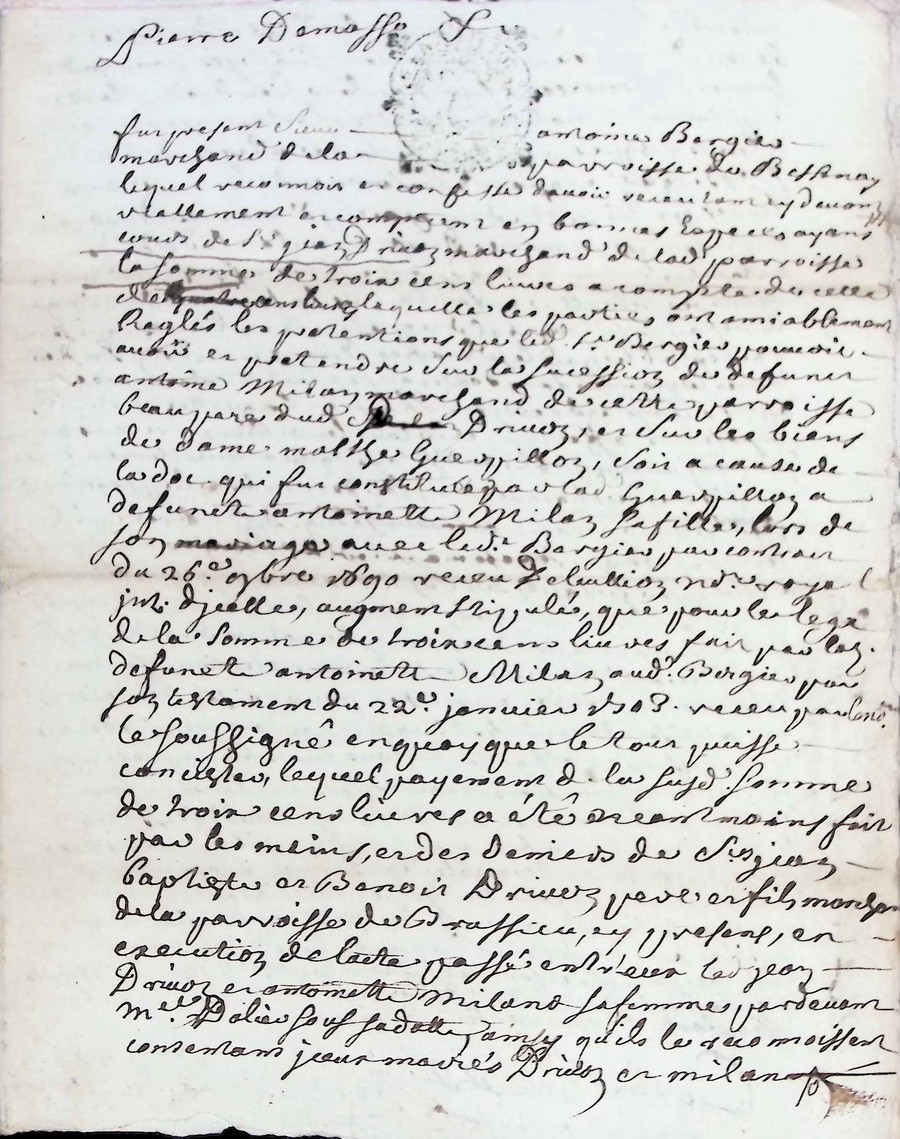 Pierre Demasso
fut present Sieur antoine Bergier
marchand de la parroisse de Bessenay
lequel reconnois et confesse davoir receu tant cy devant
reallement et comptent en bonnes Especes ayans
cours de Sr jean Drivon marchand de lad parroisse
la somme de troix cens livres a compte de celle
de quatre cens livres laquelle les parties ont amiablement
Reglés les pretentions que led. Sr. Bergier pouvoit
avoir et pretendre sur la sucession de defunct
antoine Milan marchand de cette parroisse
beau pere dud Drivon, et sur les biens
de dame malthe Guerpillon, soit a cause de
la dot qui fut constituée par lad Guerpillon a
defuncte antoinette Milan sa fille, lors de
son mariage avec led. Sr Bergier par contrat
du 26e. 9bre 1690 receu nore. royal
jnt. djcelle, augment stipulé, que pour le lega
de la somme de troix cens livres fait par lad.
defuncte antoinette Milan aud. Bergier par
son testament du 22e. janvier 1703. receu par le no.
le soussigné en quoy que le tout puisse
concister, lequel payement de la susd. somme
de troix cens livres a été dreant moins fait
par les mains, et des deniers de Srs jean
baptiste et Benoit Drivon pere et fils marchan
de la parroisse de Brussieu, cy presens, en
execution de lacte passé entr'eux led jean
Drivon et antoinette Miland sa femme, pardevant
me. Dalier sous sa datte, ainsy qu'ils le reconnoissent
contentans jceux mariés Drivon et milan